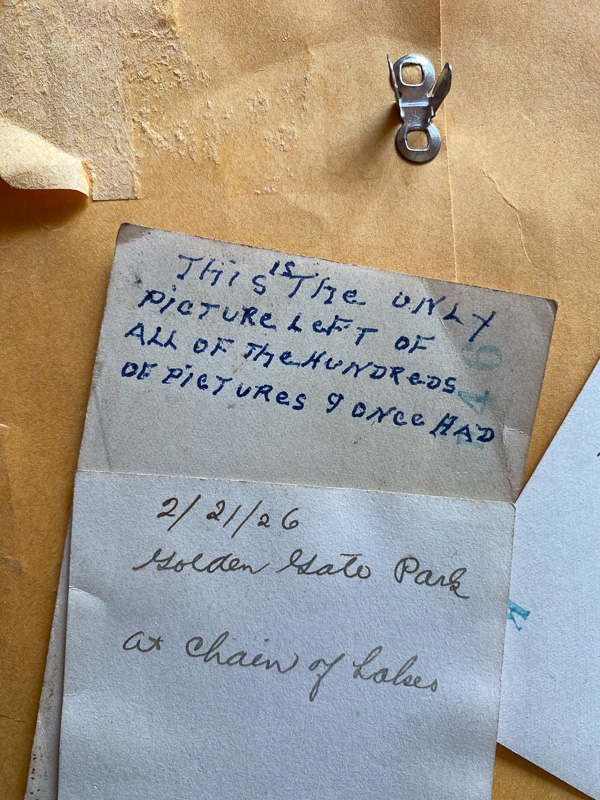 THIS IS THE ONLY
PICTURE LEFT OF
ALL OF THE HUNDREDS
OF PICTURES I ONCE HAD
2/21/26
Golden Gate Park
at Chain of Lakes